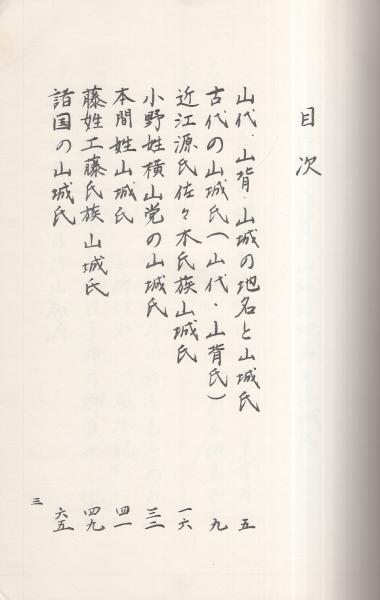 目次
山代・山背・山城の地名と山城氏 五
古代の山城氏(山代・山背氏) 九
近江源氏佐々木氏族山城氏 一六
小野姓横山党の山城氏 三二
本間姓山城氏 四一
藤姓工藤氏族山城氏 四九
諸国の山城氏 六五
三